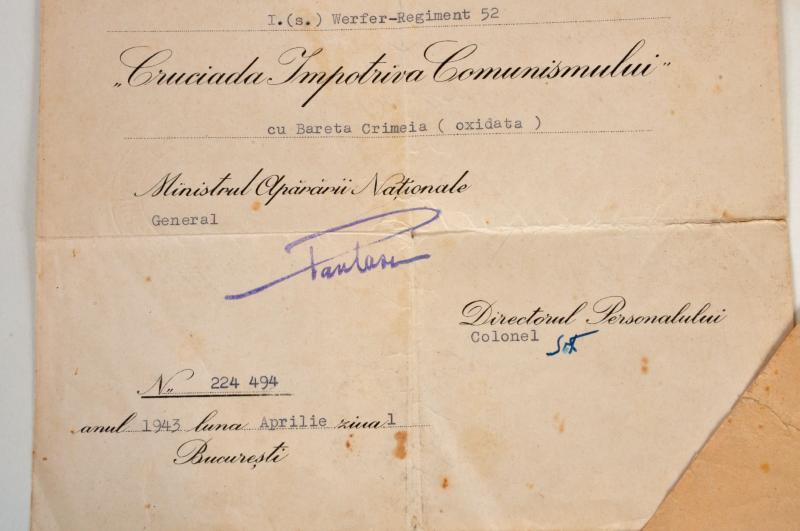 I.(s.) Werfer-Regiment 52
„Cruciada Impotriva Comunismului"
cu Bareta Crimeia ( oxidata )
Ministrul Apărării Naționale
General
Pantasi
Directorul Personalului
Colonel
No. 224 494
anul 1943 luna Aprilie ziua 1
București